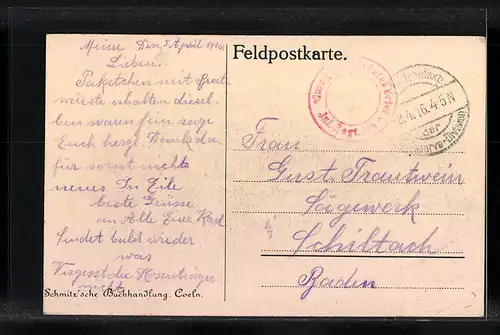 Feldpostkarte.
Meine Den 5 April 1916
Lieben.
Paketchen mit Brat
würste erhalten diesel
ben waren fein sage
Euch herzl. Dank da
für sonst nichts
neues In Eile
beste Grüsse
an Alle Eure Karl
sendet bald wieder
was
Vergesst die Hosenträger
nicht
Schmitz'sche Buchhandlung. Coeln.
Frau
Gust. Trautwein
Sägewerk
Schiltach
Baden
4.16.4-5N